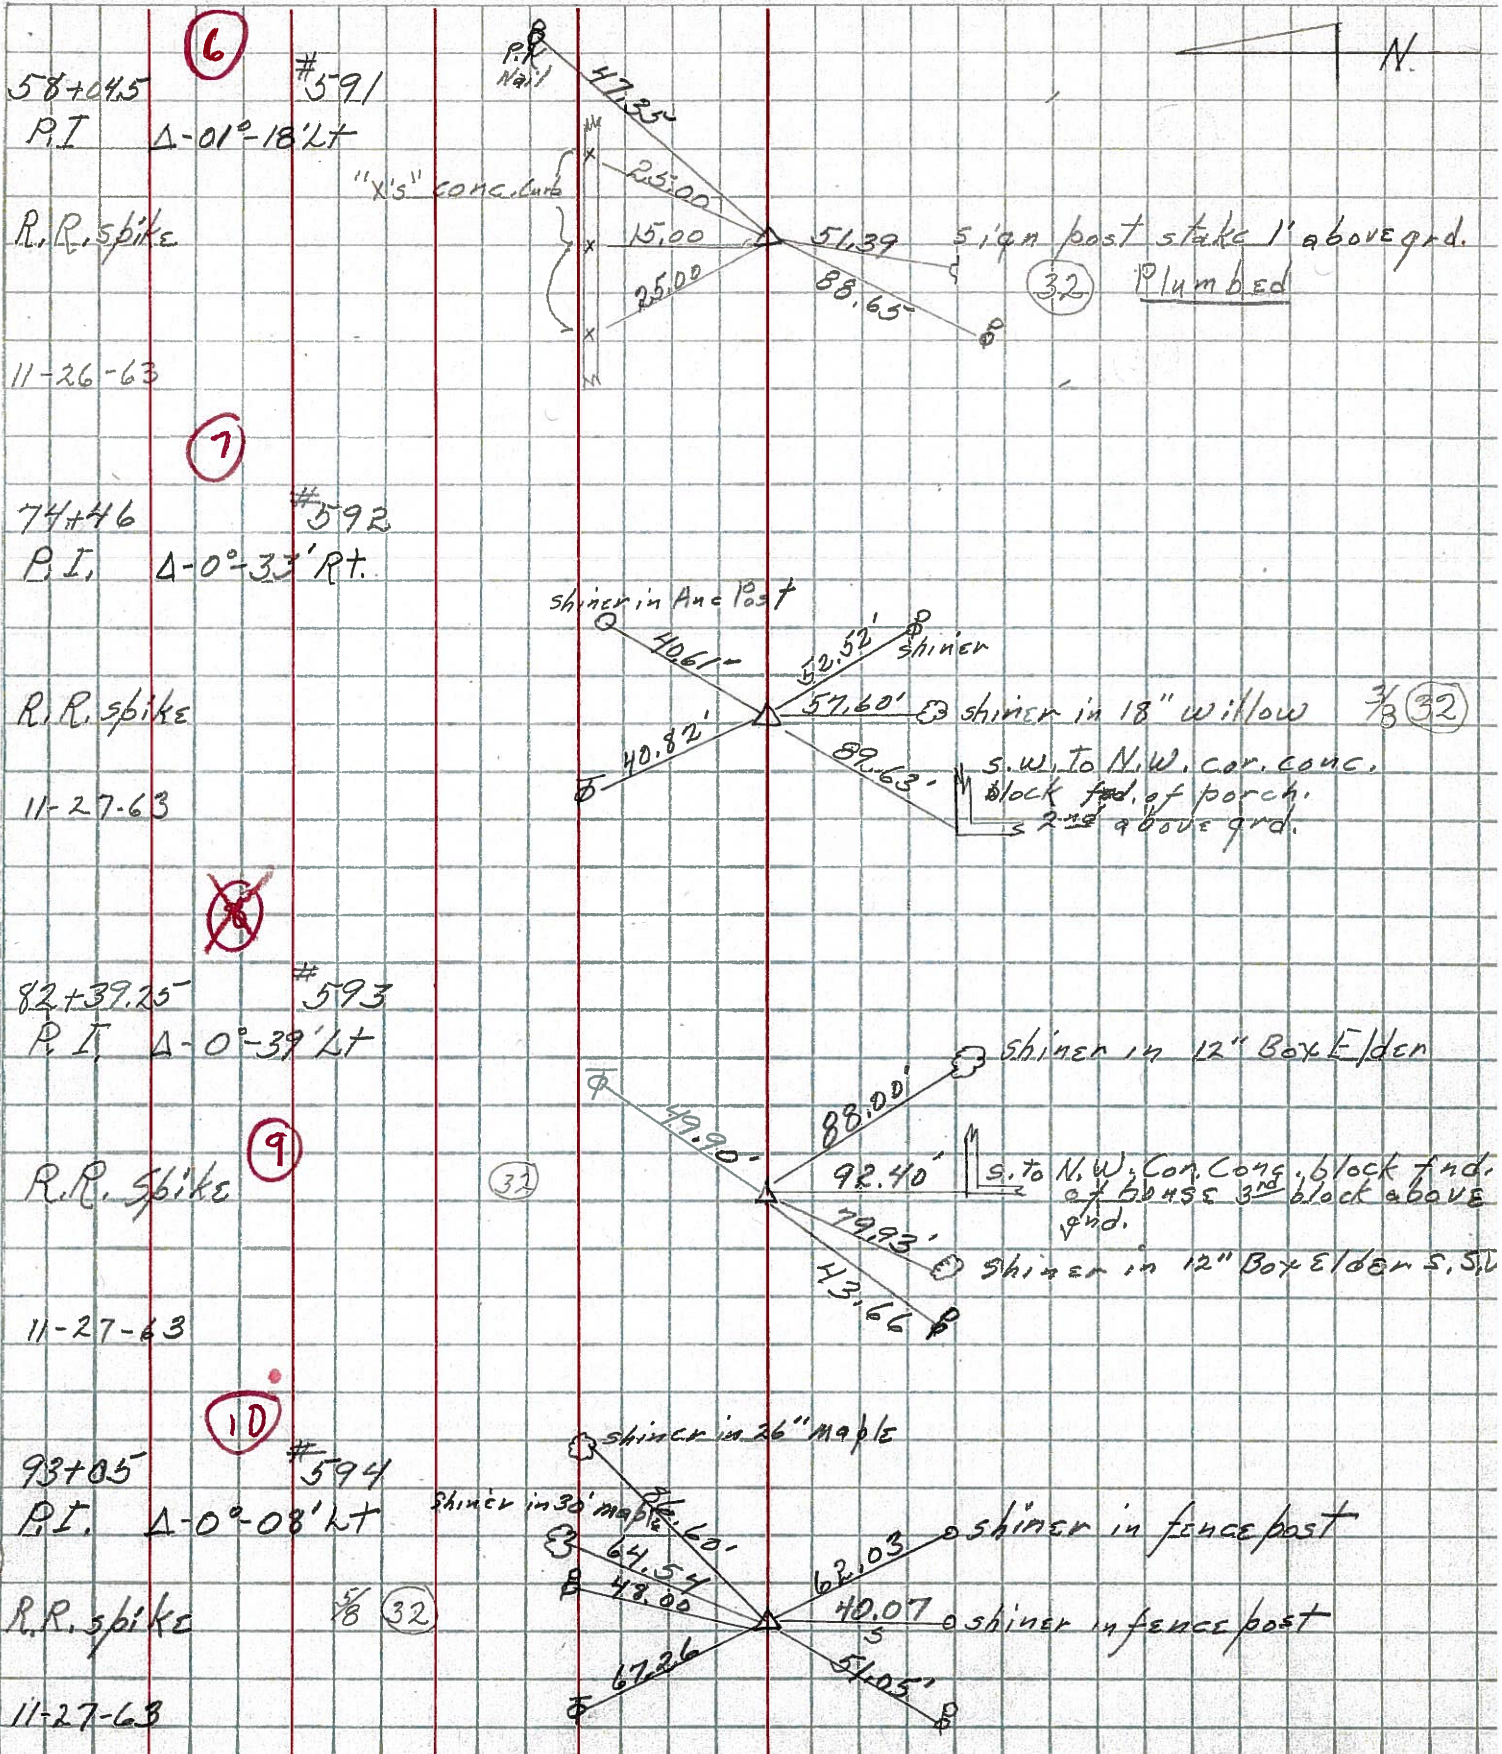 6
58+04.5 #591
P.I. Δ-01°-18' Lt
R.R. spike
11-26-63
P.K. Nail
47.35
"X's" conc. curb
25.00
15.00
25.00
51.39
sign post stake 1' above grd.
32 Plumbed
88.65
N.
7
74+46 #592
P.I. Δ-0°-33' Rt.
R.R. spike
11-27-63
shiner in Anc Post
40.61
40.82'
52.52'
shiner
57.60'
shiner in 18" willow 3/8 32
89.63
s.w. To N.W. cor. conc.
block fnd. of porch.
2nd above grd.
8
82+39.25 #593
P.I. Δ-0°-39' Lt
9
R.R. Spike 32
11-27-63
49.90
88.00'
shiner in 12" Box Elder
92.40'
s. to N.W. Cor. Conc. block fnd.
of house 3rd block above
gnd.
79.93'
Shiner in 12" Box Elder S.
43.66
10
93+05 #594
P.I. Δ-0°-08' Lt
R.R. spike 5/8 32
11-27-63
shiner in 26" maple
86.60
Shiner in 30' maple
64.54
48.00
67.26
62.03
shiner in fence post
40.07
s
shiner in fence post
51.05'